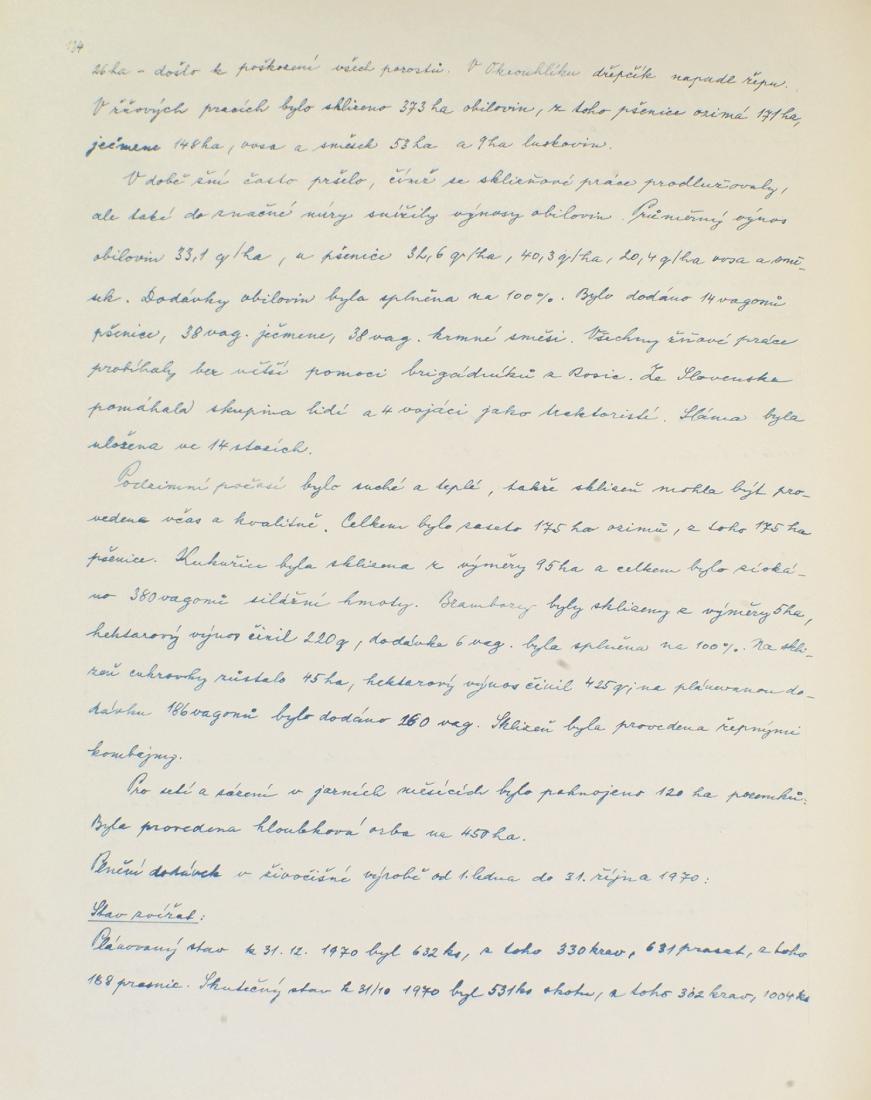 134
26 ha - došlo k poškození všech porostů. V Okrouhlíku dřepčík napadl řepu.
V žňových pracích bylo sklizeno 373 ha obilovin, z toho pšenice ozimá 171 ha,
ječmene 148 ha, ovsa a směsek 53 ha a 9 ha luskovin.
V době žní často pršelo, čímž se sklizňové práce prodlužovaly,
ale také do značné míry snížily výnosy obilovin. Průměrný výnos
obilovin 33,1 q/ha, u pšenice 32,6 q/ha, 40,3 q/ha, 20,4 q/ha ovsa a smě-
sek. Dodávky obilovin byla splněna na 100%. Bylo dodáno 14 vagonů
pšenice, 38 vag. ječmene, 38 vag. krmné směsi. Všechny žňové práce
probíhaly bez větší pomoci brigádníků z Rosic. Ze Slovenska
pomáhala skupina lidí a 4 vojáci jako traktoristé. Sláma byla
uložena ve 14 stozích.
Podzimní počasí bylo suché a teplé, takže sklizeň mohla být pro-
vedena včas a kvalitně. Celkem bylo zaseto 175 ha ozimů, z toho 175 ha
pšenice. Kukuřice byla sklizena z výměry 95 ha a celkem bylo siloká-
no 380 vagonů silážní hmoty. Brambory byly sklizeny z výměry 5 ha,
hektarový výnos činil 220 q, dodávka 6 vag. byla splněna na 100%. Na skli-
zeň cukrovky zůstalo 45 ha, hektarový výnos činil 425 q; na plánovanou do-
dávku 186 vagonů bylo dodáno 160 vag. Sklizeň byla provedena řepnými
kombajny.
Pro setí a sázení v jarních měsících bylo pohnojeno 120 ha pozemků.
Byla provedena hloubková orba na 450 ha.
Plnění dodávek v živočišné výrobě od 1. ledna do 31. října 1970:
Stav zvířat:
Plánovaný stav k 31. 12. 1970 byl 632 ks, z toho 330 krav, 631 prasat, z toho
168 prasnic. Skutečný stav k 31/10 1970 byl 531 ks skotu, z toho 302 krav, 1004 ks